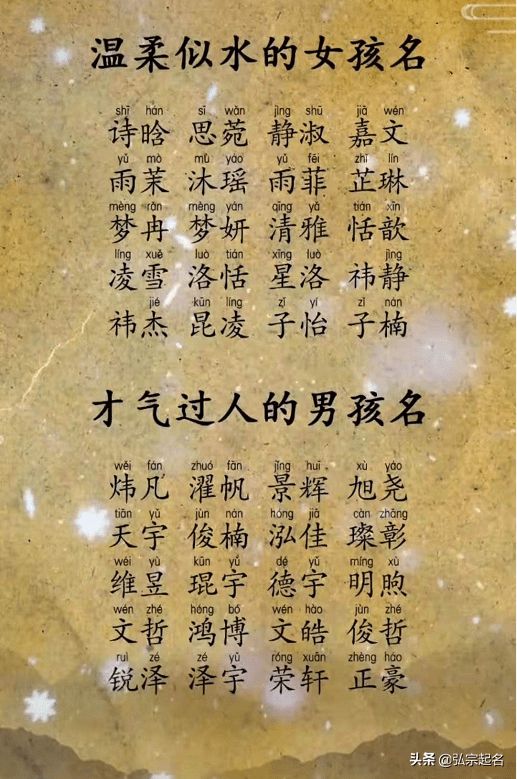 温柔似水的女孩名
shī hán sī wàn jìng shū jiā wén
诗晗 思菀 静淑 嘉文
yǔ mò mù yáo yǔ fēi zhǐ lín
雨茉 沐瑶 雨菲 芷琳
mèng rǎn mèng yán qīng yǎ tián xīn
梦冉 梦妍 清雅 恬歆
líng xuě luò tián xīng luò jìng
凌雪 洛恬 星洛 祎静
jié kūn líng zǐ yí zǐ nán
祎杰 昆凌 子怡 子楠
才气过人的男孩名
wěi fán zhuó fān jǐng huī xù yáo
炜凡 濯帆 景辉 旭尧
tiān yǔ jùn nán hóng jiā càn zhāng
天宇 俊楠 泓佳 璨彰
wéi yù kūn yǔ dé yǔ míng xù
维昱 琨宇 德宇 明煦
wén zhé hóng bó wén hào jùn zhé
文哲 鸿博 文皓 俊哲
ruì zé zé yǔ róng xuān zhèng háo
锐泽 泽宇 荣轩 正豪
头条 @弘宗起名